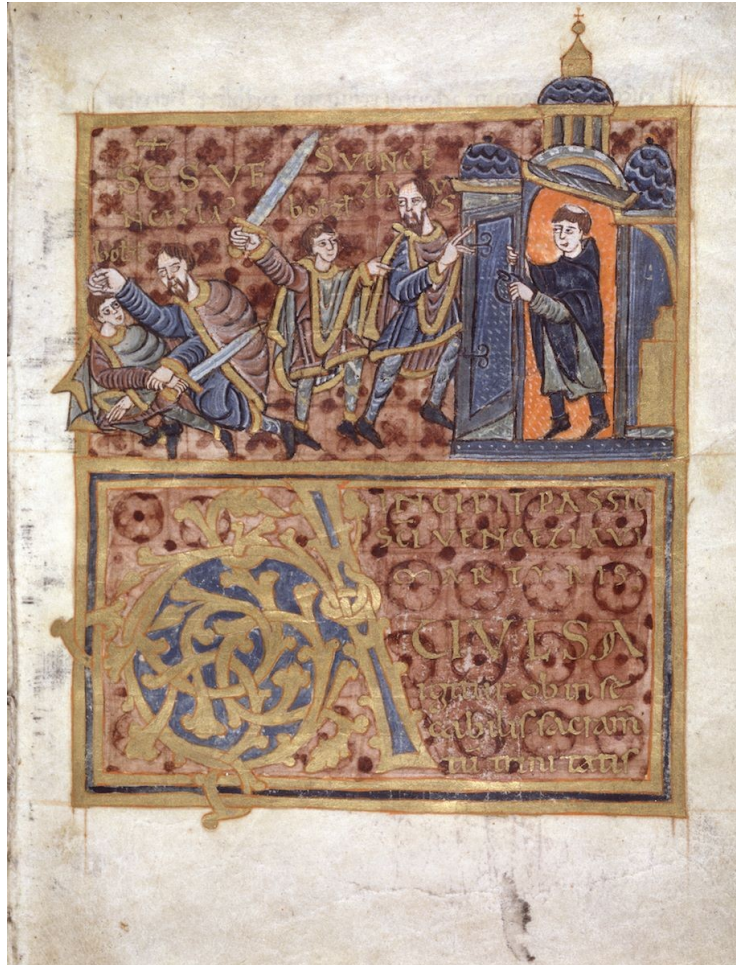 SCS VE
NCEZLAVS
bolez
S VENCE
bolez ZLAVV
S
INCIPIT PASSIO
SCI VENCEZLAVI
MARTYRIS
ACIVLSA
igitur ob inse
cabilis sacram
tū trinitatis